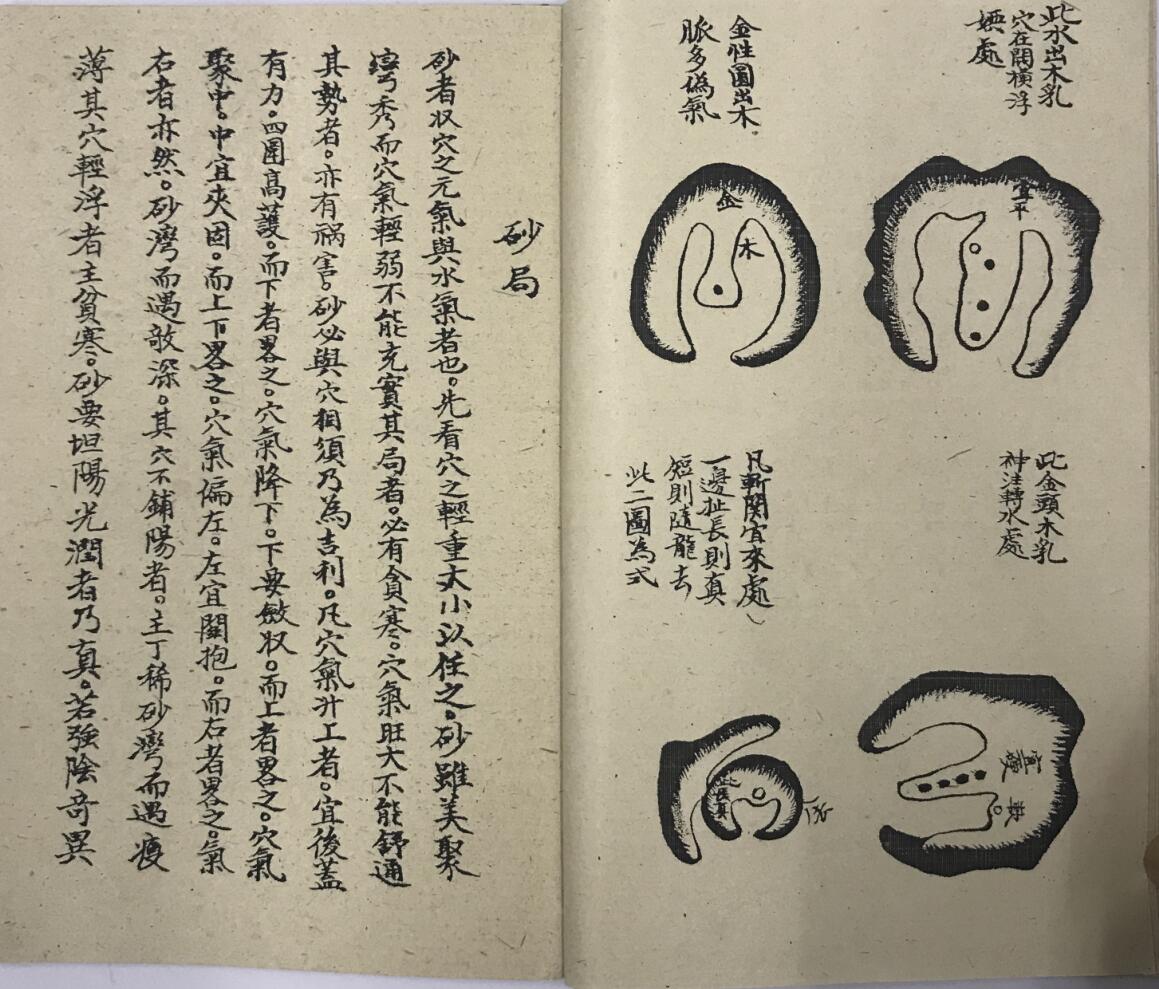 此水出木乳
穴在闊橫浮
處
金性圓出木
脈多偽氣
宜平
金
木
此金頭木乳
神注轉水處
凡斬関宜來處
一邊扯長則真
短則隨龍去
此二圖為式
宜硬
軟
砂局
砂者収穴之元氣與水氣者也。先看穴之輕重大小以任之。砂雖美聚
彎秀而穴氣輕弱不能充實其局者。必有貪寒。穴氣旺大不能舒通
其勢者。亦有禍害。砂必與穴相須乃為吉利。凡穴氣升工者。宜後蓋
有力。四圍高護。而下者畧之。穴氣降下。下要斂収。而上者畧之。穴氣
聚中。中宜夾固。而上下畧之。穴氣偏左。左宜關抱。而右者畧之。氣
右者亦然。砂灣而遇敧深。其穴不鋪陽者。主丁稀砂灣而遇瘦
薄其穴輕浮者主貧寒。砂要坦陽光潤者乃真。若強陰奇異